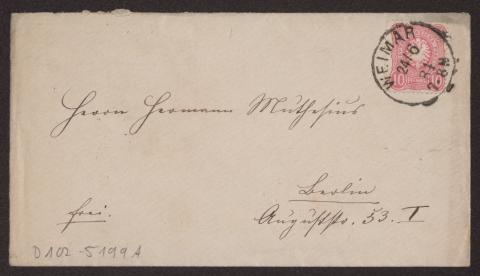 WEIMAR
24/6
81
2-3N
10 10
Herrn Hermann Muthesius
Berlin
Auguststr. 53. I
frei.
D 102 - 5199 A